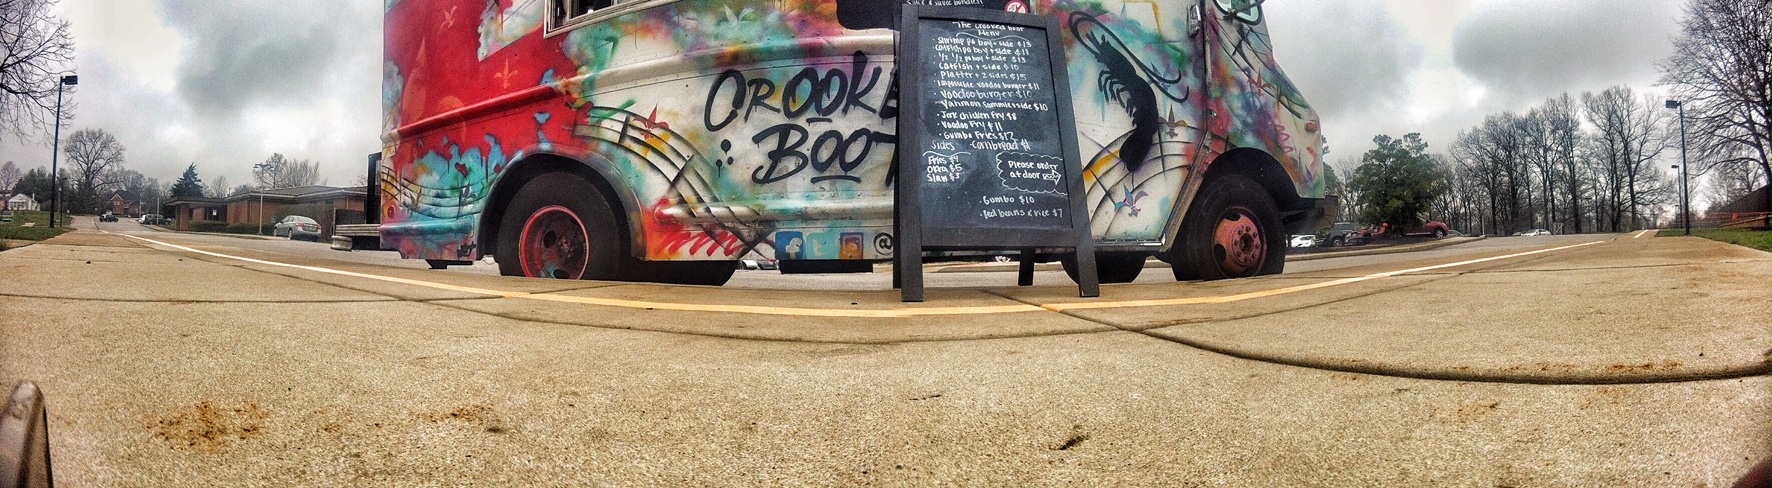 CROOKE
BOOT
@
The Crooked Boot
Menu
Shrimp po boy + side $13
Catfish po boy + side $11
1/2 1/2 po boy + side $13
Catfish + side $10
Platter + 2 sides $15
Impossible voodoo burger $11
Voodoo burger $10
Yahmon Sammie + side $10
Jerk chicken Fry $8
Voodoo Fry $11
Gumbo Fries $12
Sides
Cornbread $1
Fries $4
Okra $5
Slaw $3
Please order
at door
Gumbo $10
Red beans & rice $7